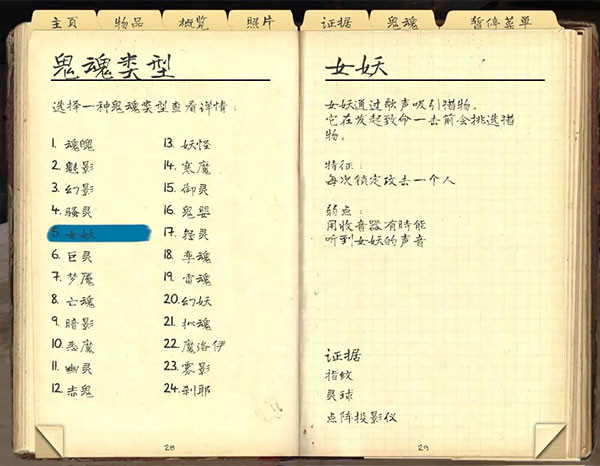 主页 物品 概览 照片 证据 鬼魂 暂停菜单
鬼魂类型
选择一种鬼魂类型查看详情：
1. 魂魄
2. 魅影
3. 幻影
4. 骚灵
5. 女妖
6. 巨灵
7. 梦魇
8. 亡魂
9. 暗影
10. 恶魔
11. 幽灵
12. 赤鬼
13. 妖怪
14. 寒魔
15. 御灵
16. 鬼婴
17. 怨灵
18. 孪魂
19. 雷魂
20. 幻妖
21. 拟魂
22. 魔洛伊
23. 雾影
24. 刹耶
28
女妖
女妖通过歌声吸引猎物。
它在发起致命一击前会挑选猎
物。
特征：
每次锁定攻击一个人
弱点：
用收音器有时能
听到女妖的声音
证据
指纹
灵球
点阵投影仪
29